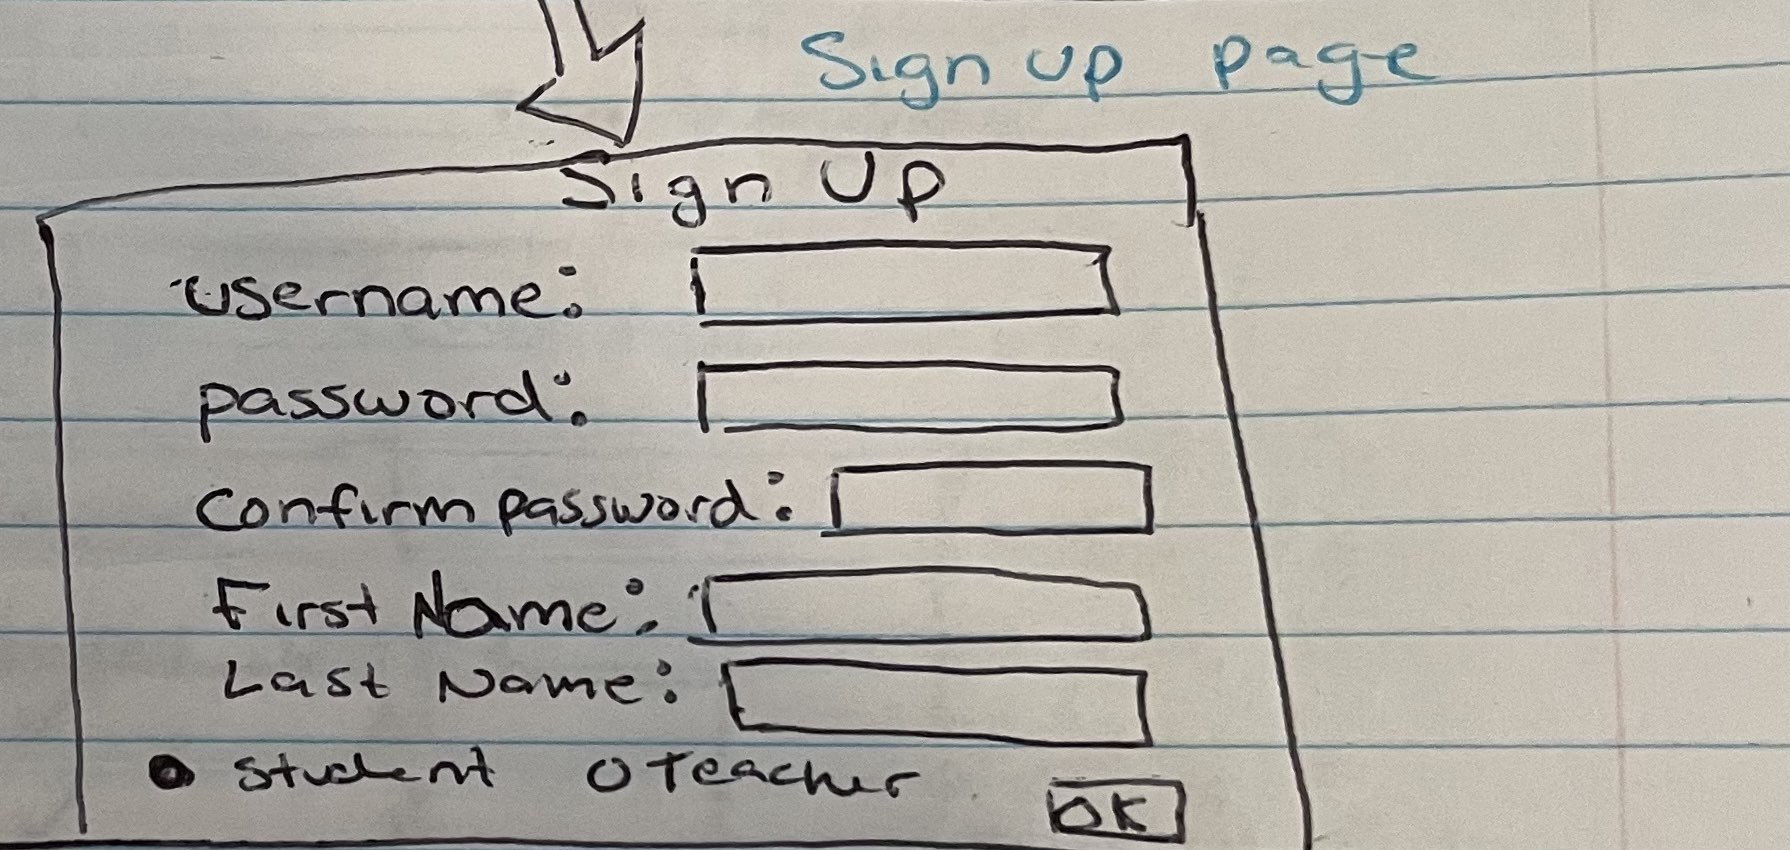 Sign up page
Sign Up
username:
password:
Confirm password:
First Name:
Last Name:
student Teacher
OK